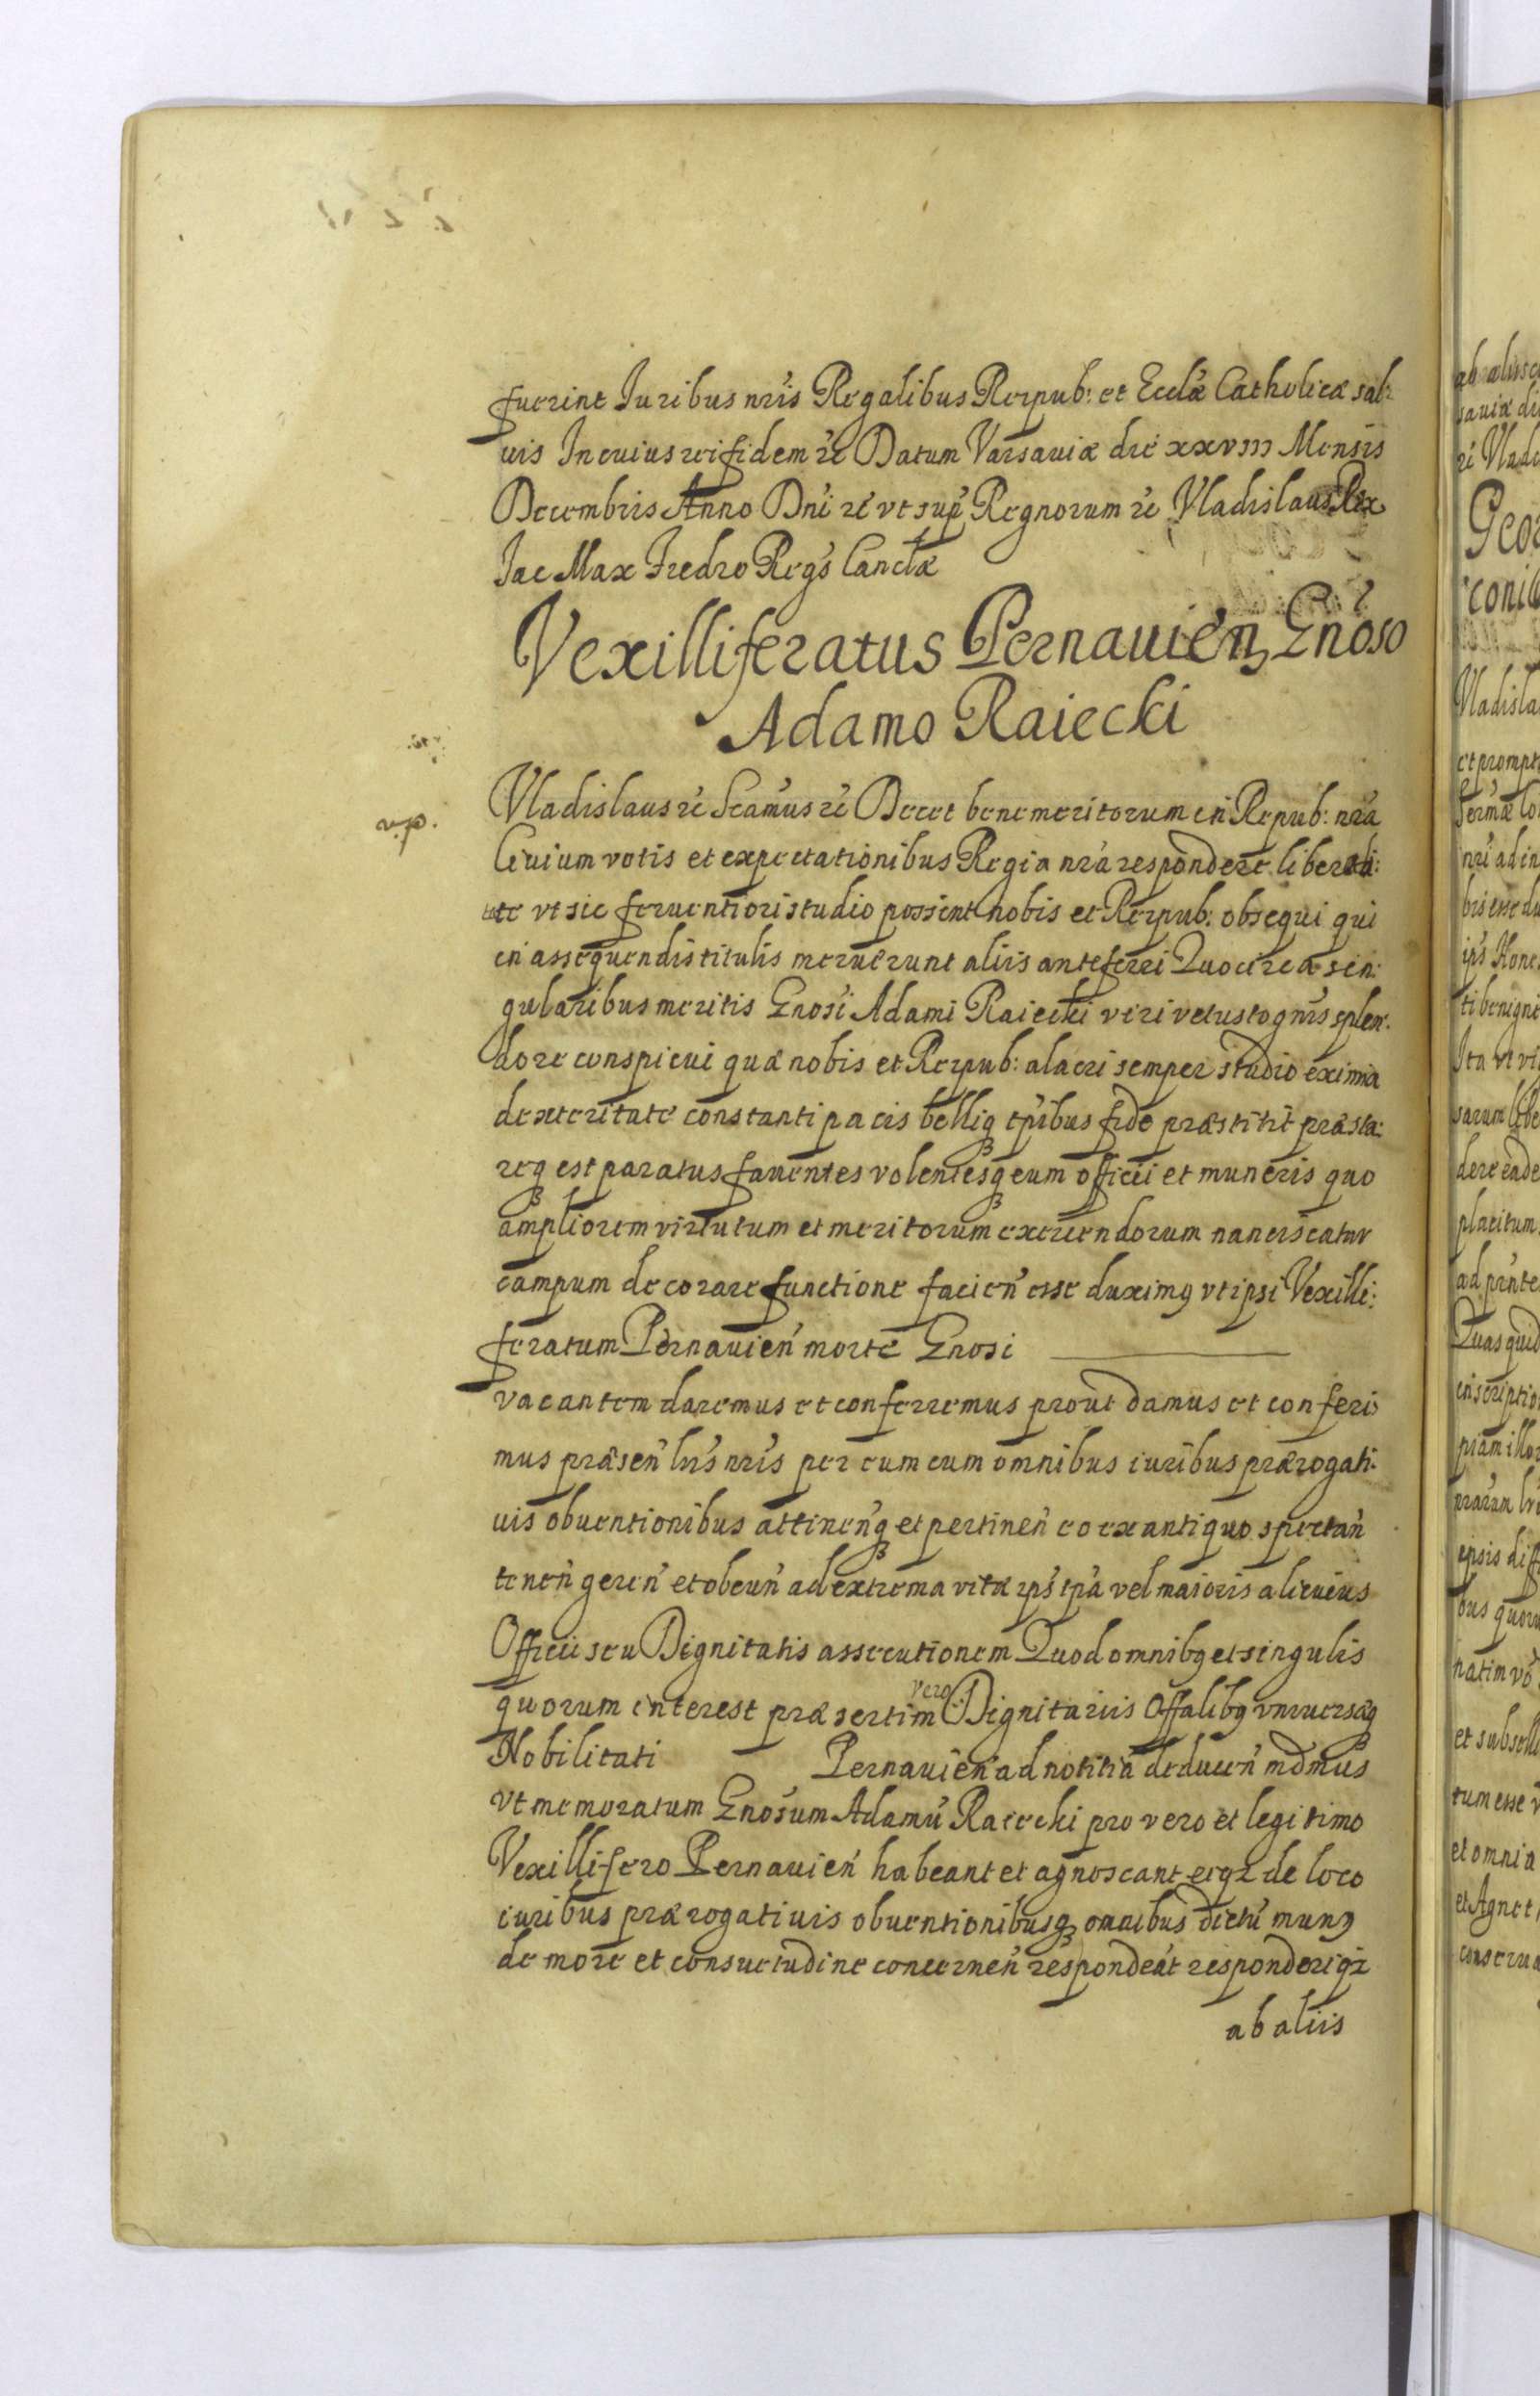 fuerint Iuribus nr̃is Regalibus Reipub: et Eccl̃æ Catholicæ sal:
uis In cuius rei fidem ꝛc̃ Datum Varsauiæ die xxviii Mensis
Decembris Anno Dñi ꝛc̃ vt sup̃ Regnorum ꝛc̃ Vladislaus Rex
Iac Max Fredro Reg̃s Cancl̃æ
Vexilliferatus Pernauien̄ Gnõso
Adamo Raiecki
Vladislaus ꝛc̃ Scãmus ꝛc̃ Decet benemeritorum in Repub: nr̃a
Ciuium votis et expectationibus Regia nr̃a respondere liberali:
tate vt sic feruentiori studio possint nobis et Reipub: obsequi qui
in assequendis titulis meruerunt aliis anteferri Quocirca sin:
gularibus meritis Gnõsi Adami Raiecki viri vetusto gñis splen:
dore conspicui quæ nobis et Reipub: alacri semper studio eximia
dexteritate constanti pacis belliq tp̃ibus fide præstitit præsta:
req est paratus fauentes volentesq eum officii et muneris quo
ampliorem virtutum et meritorum exercendorum nanciscatur
campum decorare functione facien̄ esse duximꝰ vt ipsi Vexilli:
feratum Pernauien̄ morte Gnosi
vacantem daremus et conferremus prout damus et conferi:
mus præsen̄ lr̃is nr̃is per eum cum omnibus iuribus prærogati:
uis obuentionibus attinen̄q et pertinen̄ eo ex antiquo spectan̄
tenen̄ geren̄ et obeun̄ ad extrema vitæ ip̃s tp̃a vel maioris alicuius
Officii seu Dignitatis assecutionem Quod omnibꝰ et singulis
quorum interest præsertim vero Dignitariis Offalibꝰ vniuersæq
Nobilitati Pernauien̄ ad notitiã deducen̄ mdm̃us
vt memoratum Gnõsum Adamũ Raiecki pro vero et legitimo
Vexillifero Pernauien̄ habeant et agnoscant eiqꝫ de loco
iuribus prærogatiuis obuentionibusq omnibus dictũ munꝰ
de more et consuetudine concernen̄ respondeãt responderiqꝫ
ab aliis